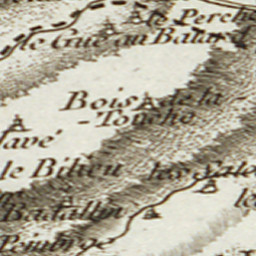 le Perche
le Gué au Batard
Bois de la
-Touche
avé
le Bilieu
les Salo
le
Badallin